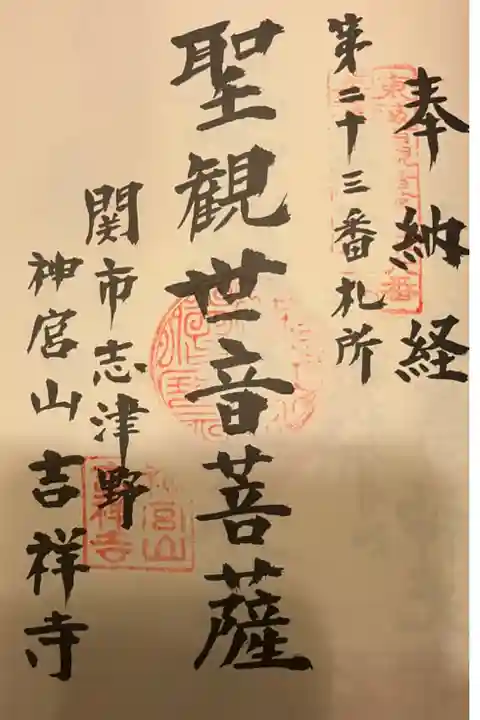 奉納経
第二十三番札所
聖観世音菩薩
関市志津野
神宮山吉祥寺